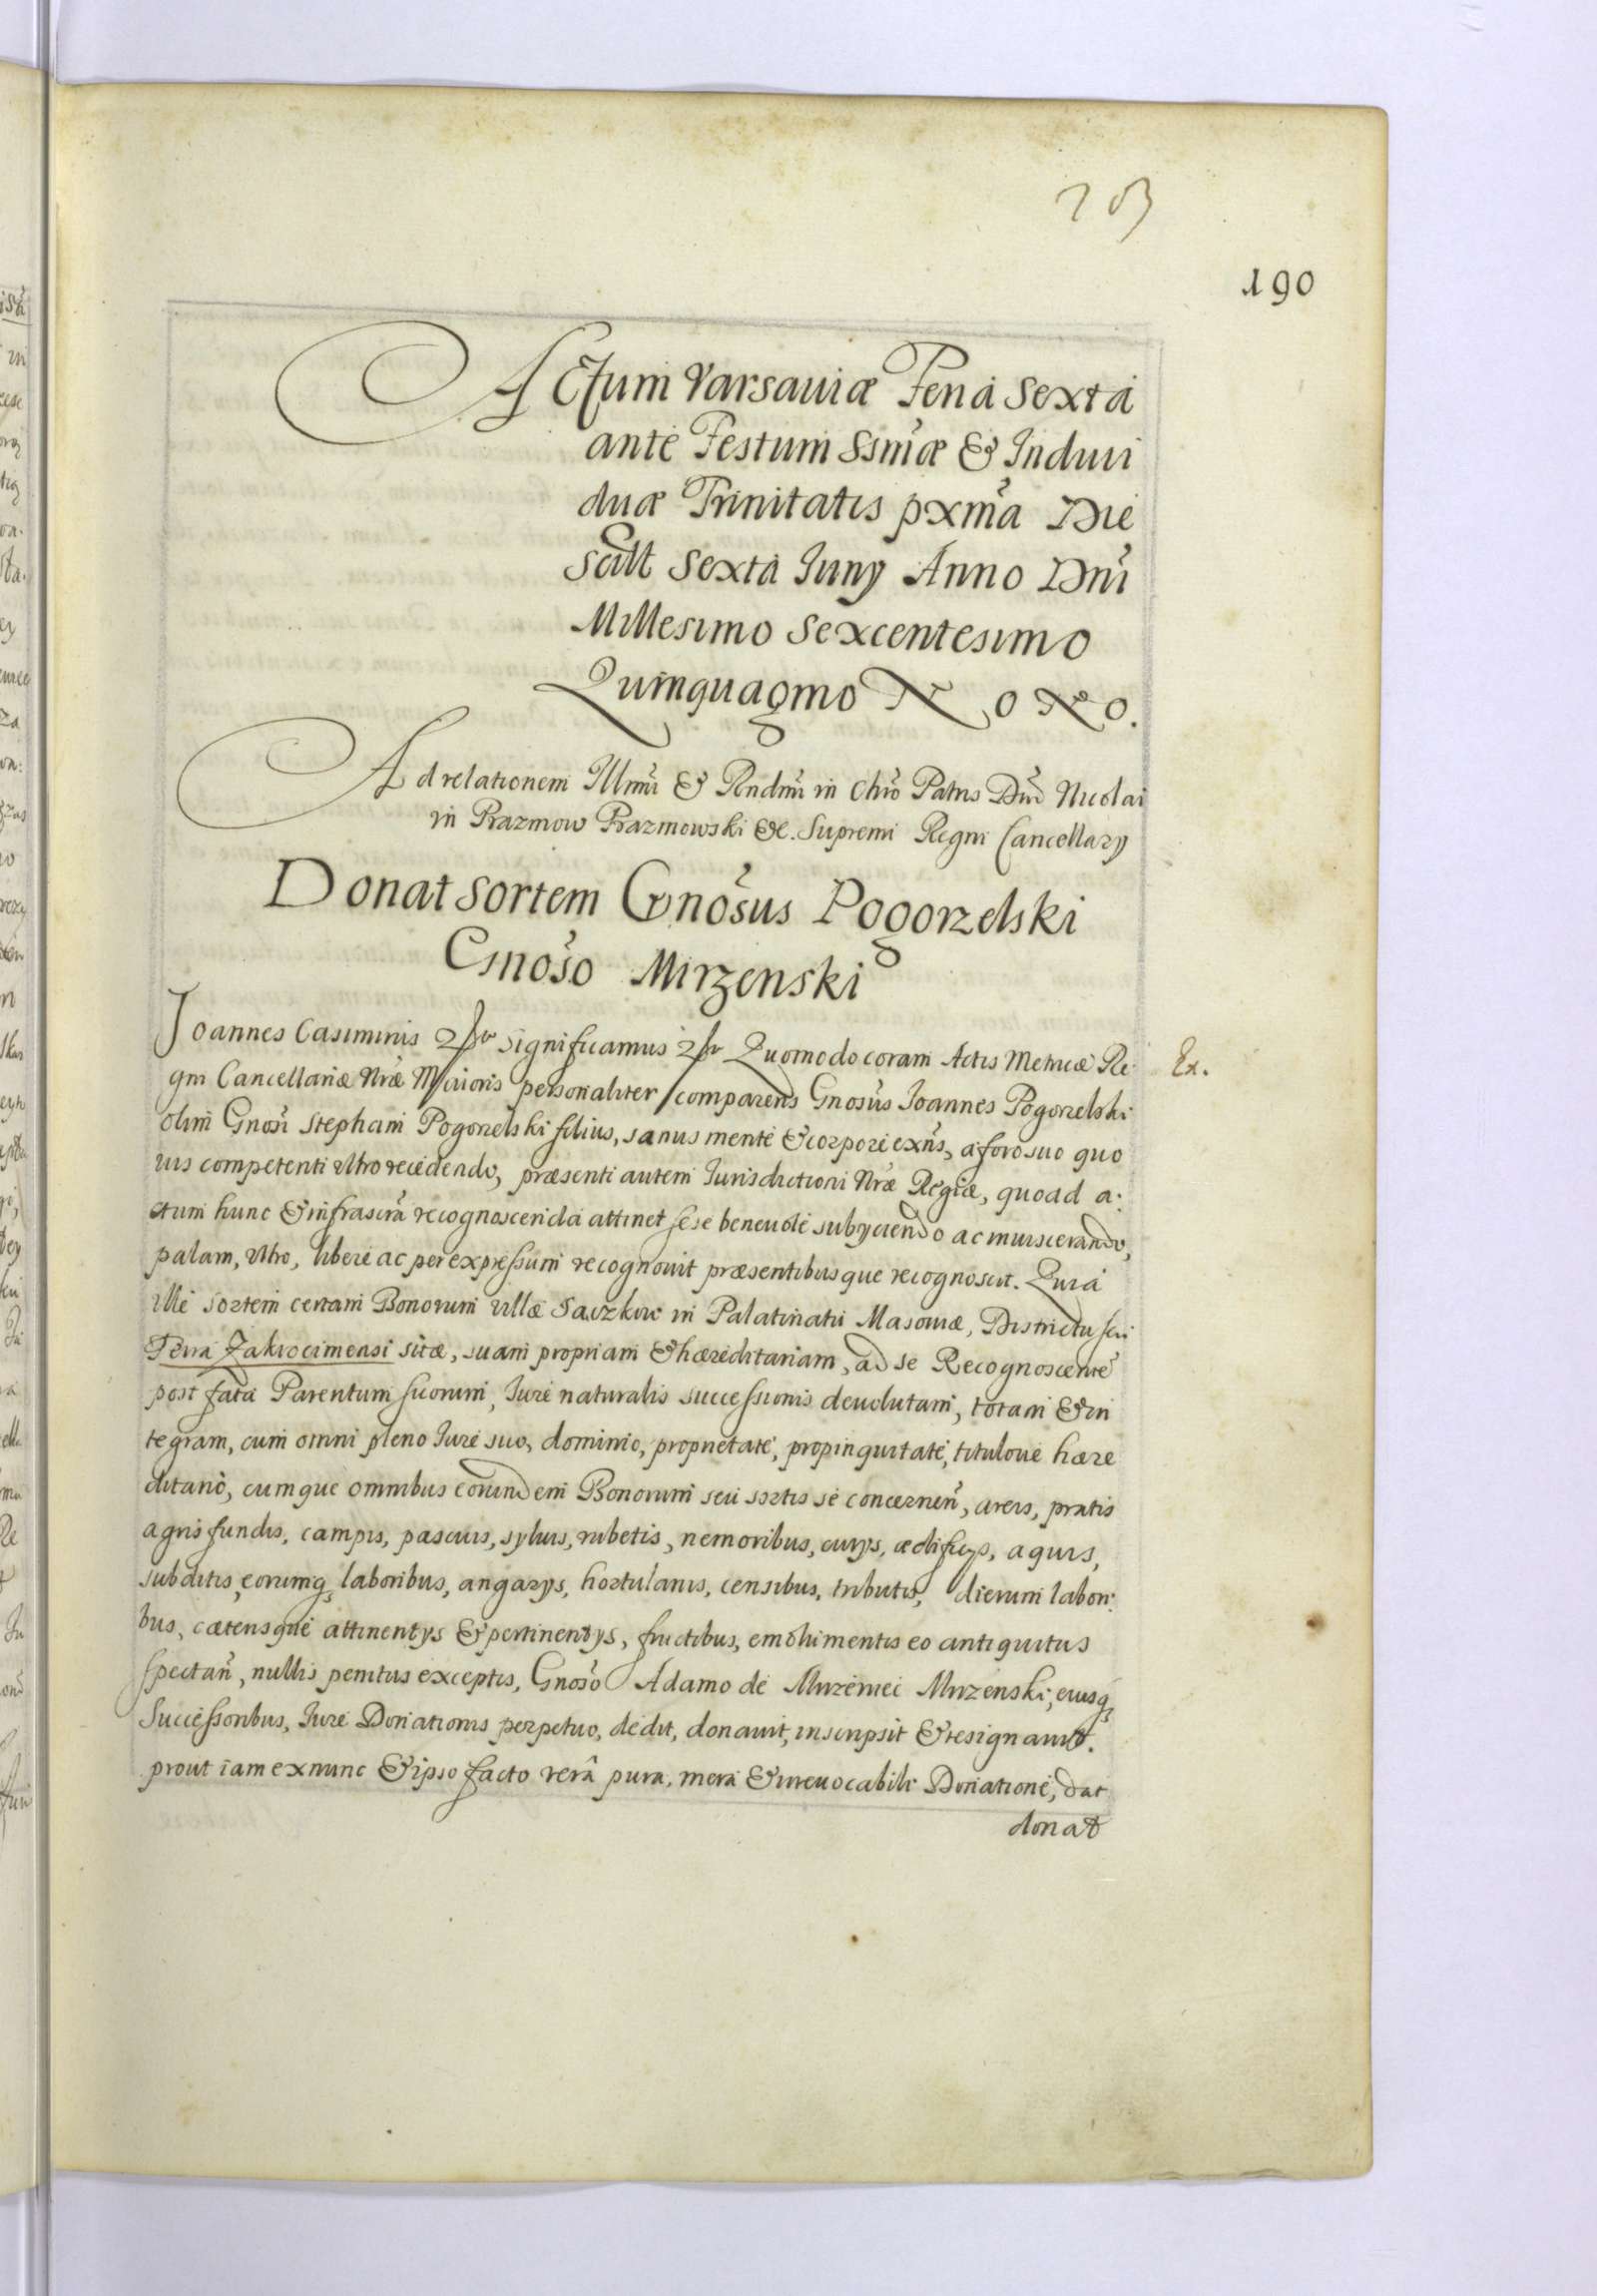 203
190
Actum Varsaviæ Feria Sexta
ante Festum Ssm̃æ & Indivi
duæ Trinitatis pxm̃a Die
scilt Sexta Juny Anno Dni
Millesimo Sexcentesimo
Quinquagmo Nono.
Ad relationem Illmi & Rndmi in Chro Patris Dni Nicolai
in Prazmow Prazmowski &c. Supremi Regni Cancellary
Donat sortem Gnosus Pogorzelski
Gnoso Mirzenski
Joannes Casimirus significamus Quomodo coram Actis Metricæ Re
Ex.
gni Cancellariæ Nræ Maioris personaliter comparens Gnosus Joannes Pogorzelski
olim Gnosi Stephani Pogorzelski filius, sanus mente & corpore exñs, a foro suo quo
vis competenti ultro recedendo, præsenti autem Jurisdictioni Nræ Regiæ, quoad a:
ctum hunc & infrascra recognoscenda attinet sese benevole subyciendo ac inviscerando,
palam, ultro, libere ac per expressum recognovit præsentibusque recognoscit. Quia
ille sortem certam Bonorum villæ in Palatinatu Masoviæ, Districtu seu
Terra Zakrocimensi sitæ, suam propriam & hæreditariam, ad se Recognoscente
post fata Parentum suorum, Jure naturalis successionis devolutam, totam & in
tegram, cum omni pleno Jure suo, dominio, proprietate, propinquitate, titulove hære
ditario, cumque omnibus eorundem Bonorum seu sortis se concernen, areis, pratis
agris fundis, campis, pascuis, sylvis, rubetis, nemoribus, curys, ædificys, aquis,
subditis, eorumq laboribus, angarys, hortulanis, censibus, tributis, dierum labori:
bus, cæterisque attinentys & pertinentys, fructibus, emolumentis eo antiquitus
spectan, nullis penitus exceptis, Gnoso Adamo de Mirzenski, eiusq
Successoribus, Jure Donationis perpetuo, dedit, donavit, inscripsit & resignavit.
prout iam ex nunc & ipso facto verâ pura, mera & irrevocabili Donatione, dat
donat